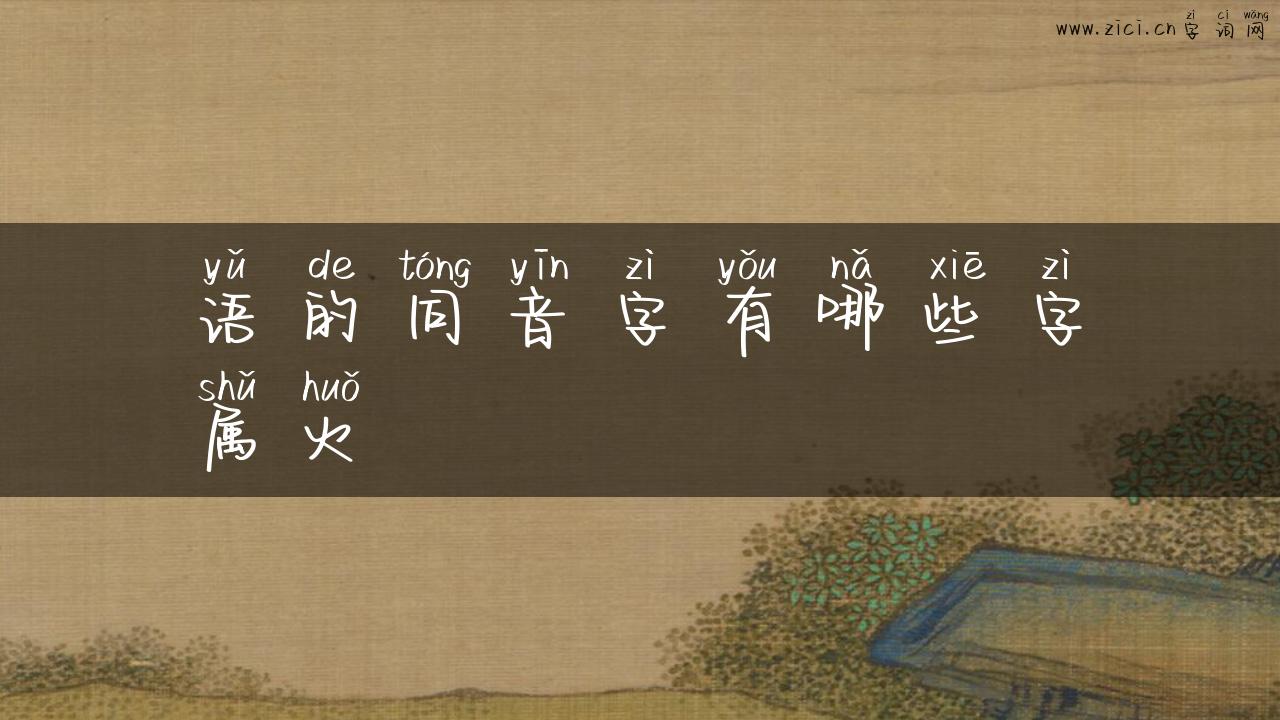 zì cí wǎng
www.zici.cn 字词网
yǔ de tóng yīn zì yǒu nǎ xiē zì
语的同音字有哪些字
shǔ huǒ
属火